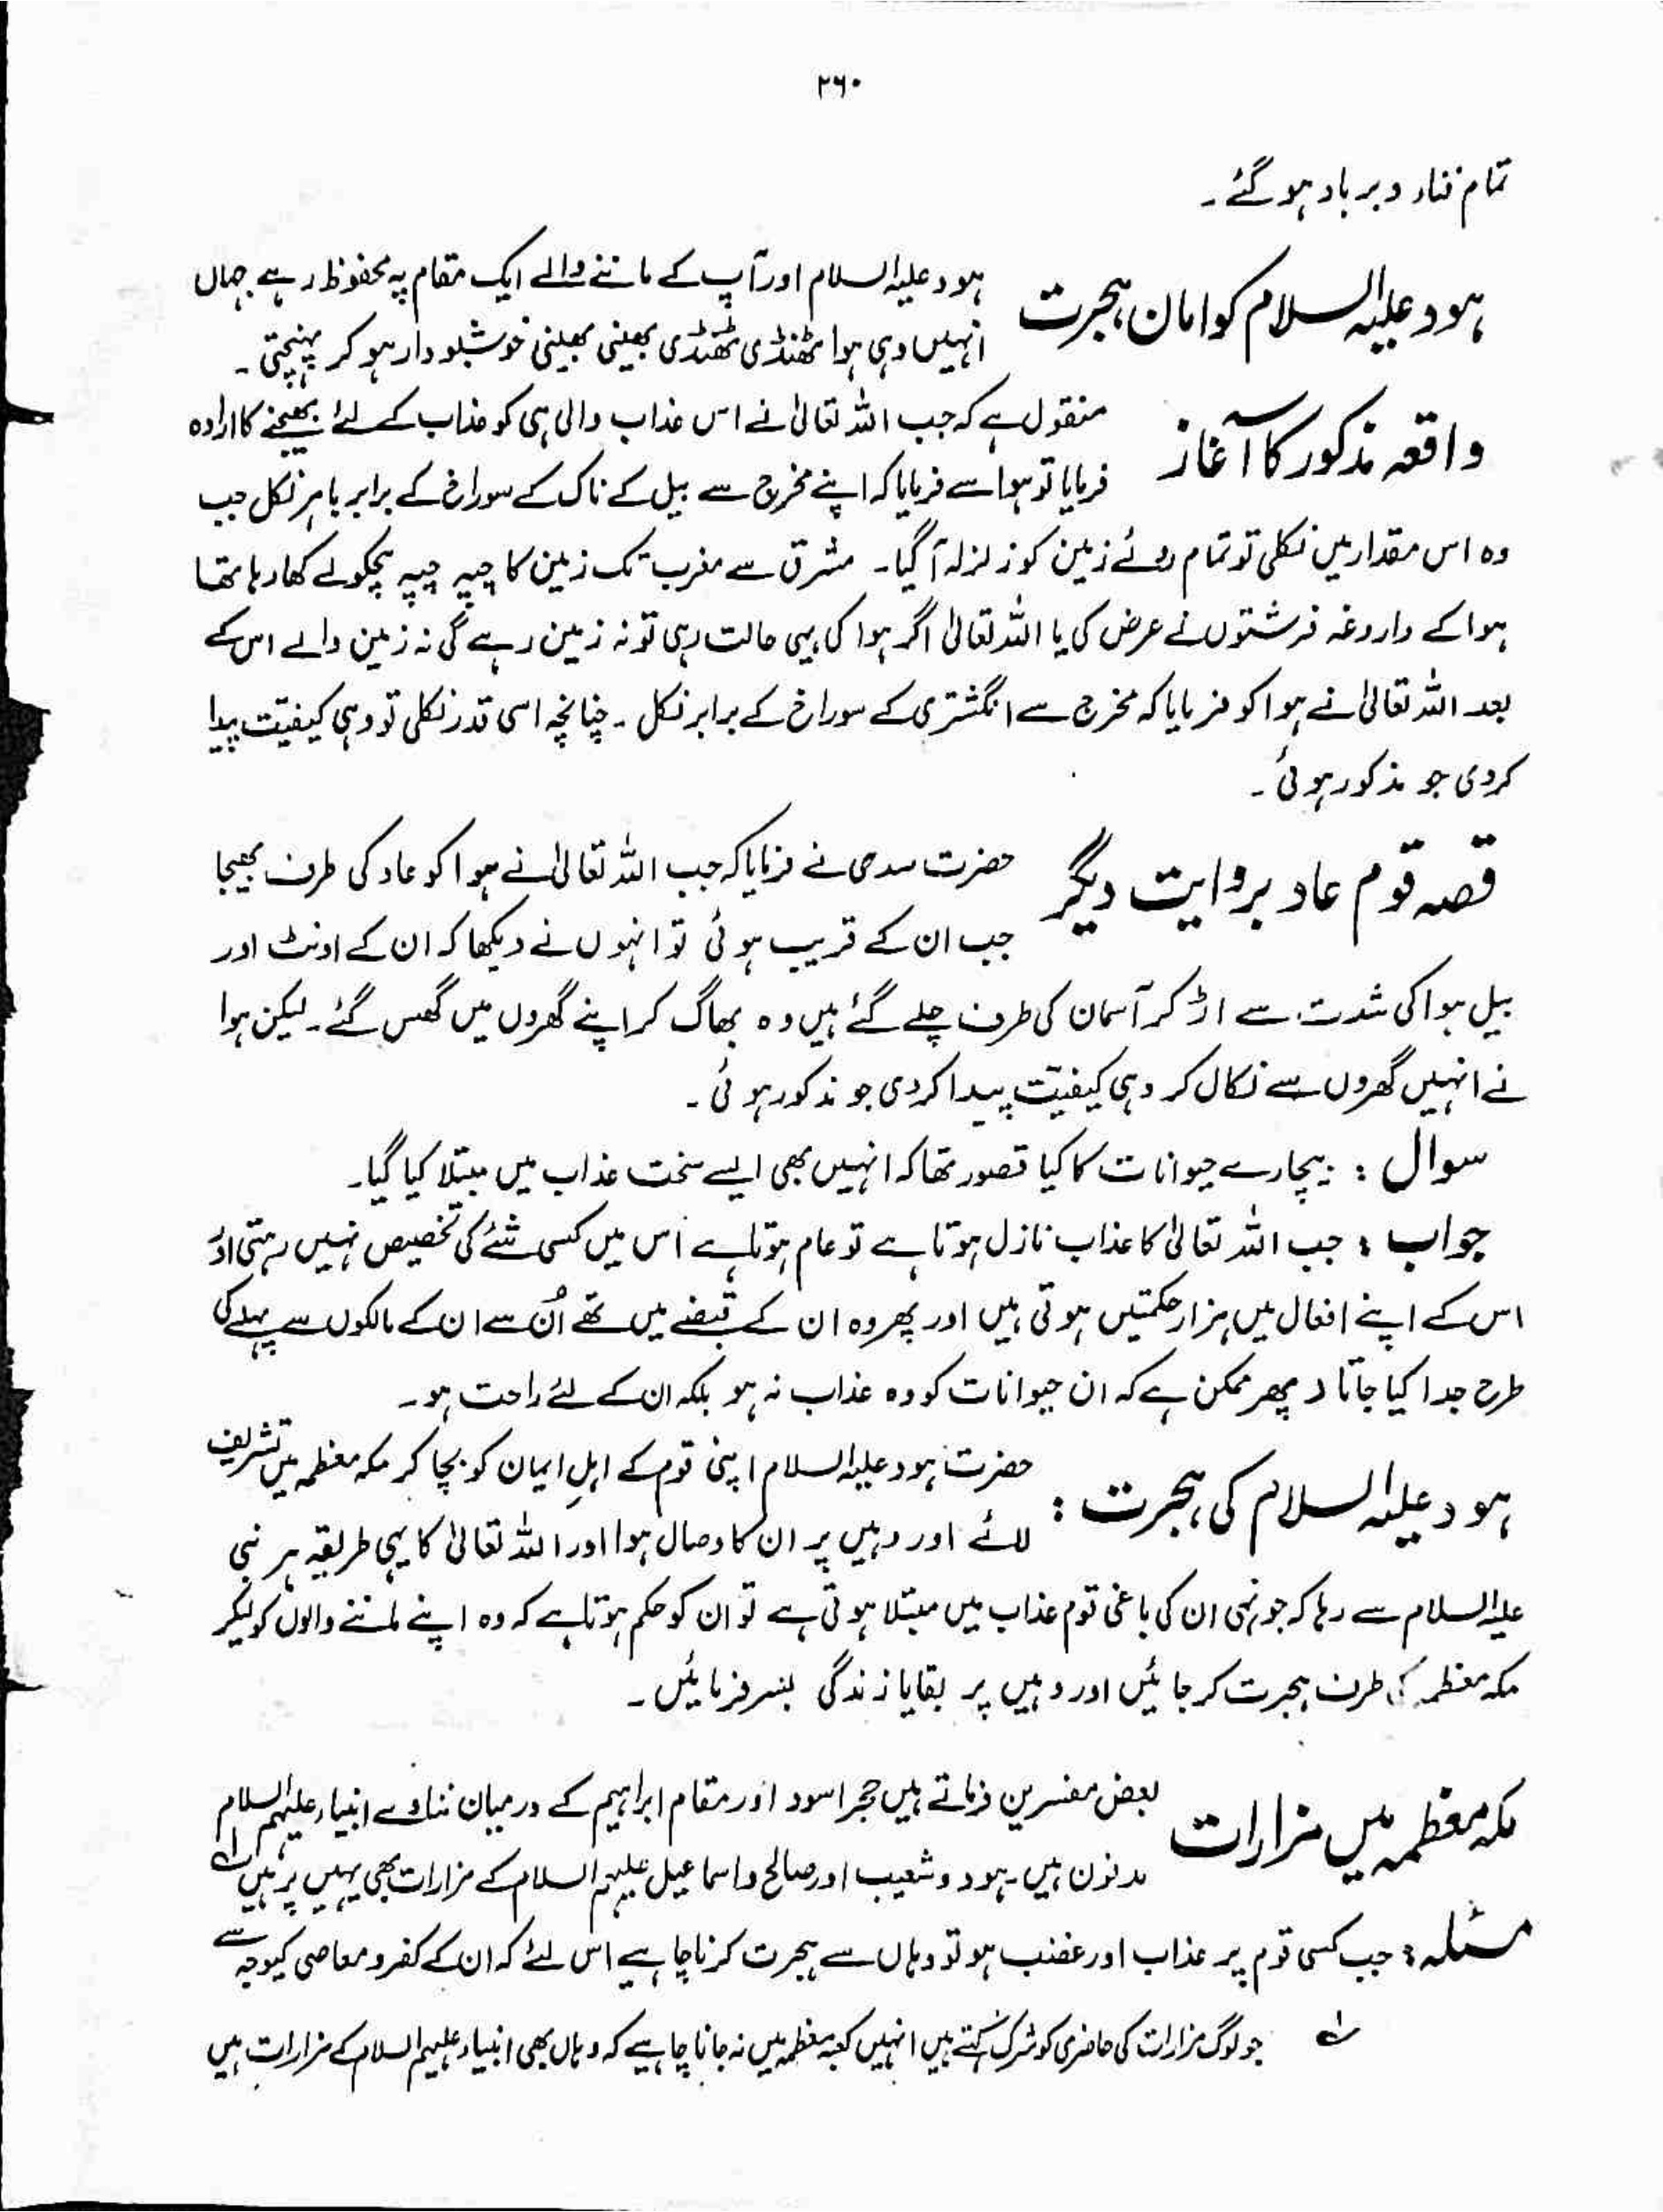 ۲۶۰
تمام فناء و برباد ہو گئے ۔
ہود علیہ السلام کو امان ہجرت ہود علیہ السلام اور آپ کے ماننے والے ایک مقام پہ محفوظ رہے جہاں
انہیں وہی ہوا ٹھنڈی ٹھنڈی بھینی بھینی خوشبودار ہو کر پہنچتی ۔
واقعہ مذکور کا آغاز منقول ہے کہ جب اللہ تعالیٰ نے اس عذاب والی ہی کو عذاب کے لئے بھیجنے کا ارادہ
فرمایا تو ہوا سے فرمایا کہ اپنے مخرج سے بیل کے ناک کے سوراخ کے برابر باہر نکل جب
وہ اس مقدار میں نکلی تو تمام روئے زمین کو زلزلہ آ گیا ۔ مشرق سے مغرب تک زمین کا چپہ چپہ ہچکولے کھا رہا تھا
ہوا کے داروغہ فرشتوں نے عرض کی یا اللہ تعالیٰ اگر ہوا کی یہی حالت رہی تو نہ زمین رہے گی نہ زمین والے اس کے
بعد اللہ تعالیٰ نے ہوا کو فرمایا کہ مخرج سے انگشتری کے سوراخ کے برابر نکل ۔ چنانچہ اسی قدر نکلی تو وہی کیفیّت پیدا
کر دی جو مذکور ہوئی ۔
قصہ قوم عاد بروایت دیگر حضرت سدی نے فرمایا کہ جب اللہ تعالیٰ نے ہوا کو عاد کی طرف بھیجا
جب ان کے قریب ہوئی تو انہوں نے دیکھا کہ ان کے اونٹ اور
بیل ہوا کی شدت سے اڑ کر آسمان کی طرف چلے گئے ہیں وہ بھاگ کر اپنے گھروں میں گھس گئے ۔ لیکن ہوا
نے انہیں گھروں سے نکال کر وہی کیفیّت پیدا کر دی جو مذکور ہوئی ۔
سوال : بیچارے حیوانات کا کیا قصور تھا کہ انہیں بھی ایسے سخت عذاب میں مبتلا کیا گیا ۔
جواب : جب اللہ تعالیٰ کا عذاب نازل ہوتا ہے تو عام ہوتا ہے اس میں کسی شئے کی تخصیص نہیں رہتی اور
اس کے اپنے افعال میں ہزار حکمتیں ہوتی ہیں اور پھر وہ ان کے قبضے میں تھے اُن سے ان کے مالکوں سے پہلے کی
طرح جدا کیا جاتا د پھر ممکن ہے کہ ان حیوانات کو وہ عذاب نہ ہو بلکہ ان کے لئے راحت ہو ۔
ہود علیہ السلام کی ہجرت : حضرت ہود علیہ السلام اپنی قوم کے اہلِ ایمان کو بچا کر مکہ معظمہ میں تشریف
لائے اور وہیں پر ان کا وصال ہوا اور اللہ تعالیٰ کا یہی طریقہ ہر نبی
علیہ السلام سے رہا کہ جونہی ان کی باغی قوم عذاب میں مبتلا ہوتی ہے تو ان کو حکم ہوتا ہے کہ وہ اپنے ماننے والوں کو لیکر
مکہ معظمہ کی طرف ہجرت کر جائیں اور وہیں پر بقایا زندگی بسر فرمائیں ۔
مکہ معظمہ میں مزارات بعض مفسرین فرماتے ہیں حجر اسود اور مقام ابراہیم کے درمیان ننانوے انبیاء علیہم السلام
مدفون ہیں ۔ ہود و شعیب اور صالح و اسماعیل علیہم السلام کے مزارات بھی یہیں پر ہیں لے
مسئلہ : جب کسی قوم پر عذاب اور غضب ہو تو وہاں سے ہجرت کرنا چاہیے اس لئے کہ ان کے کفر و معاصی کیوجہ سے
لے جو لوگ مزارات کی حاضری کو شرک کہتے ہیں انہیں کعبہ معظمہ میں نہ جانا چاہیے کہ وہاں بھی انبیاء علیہم السلام کے مزارات ہیں